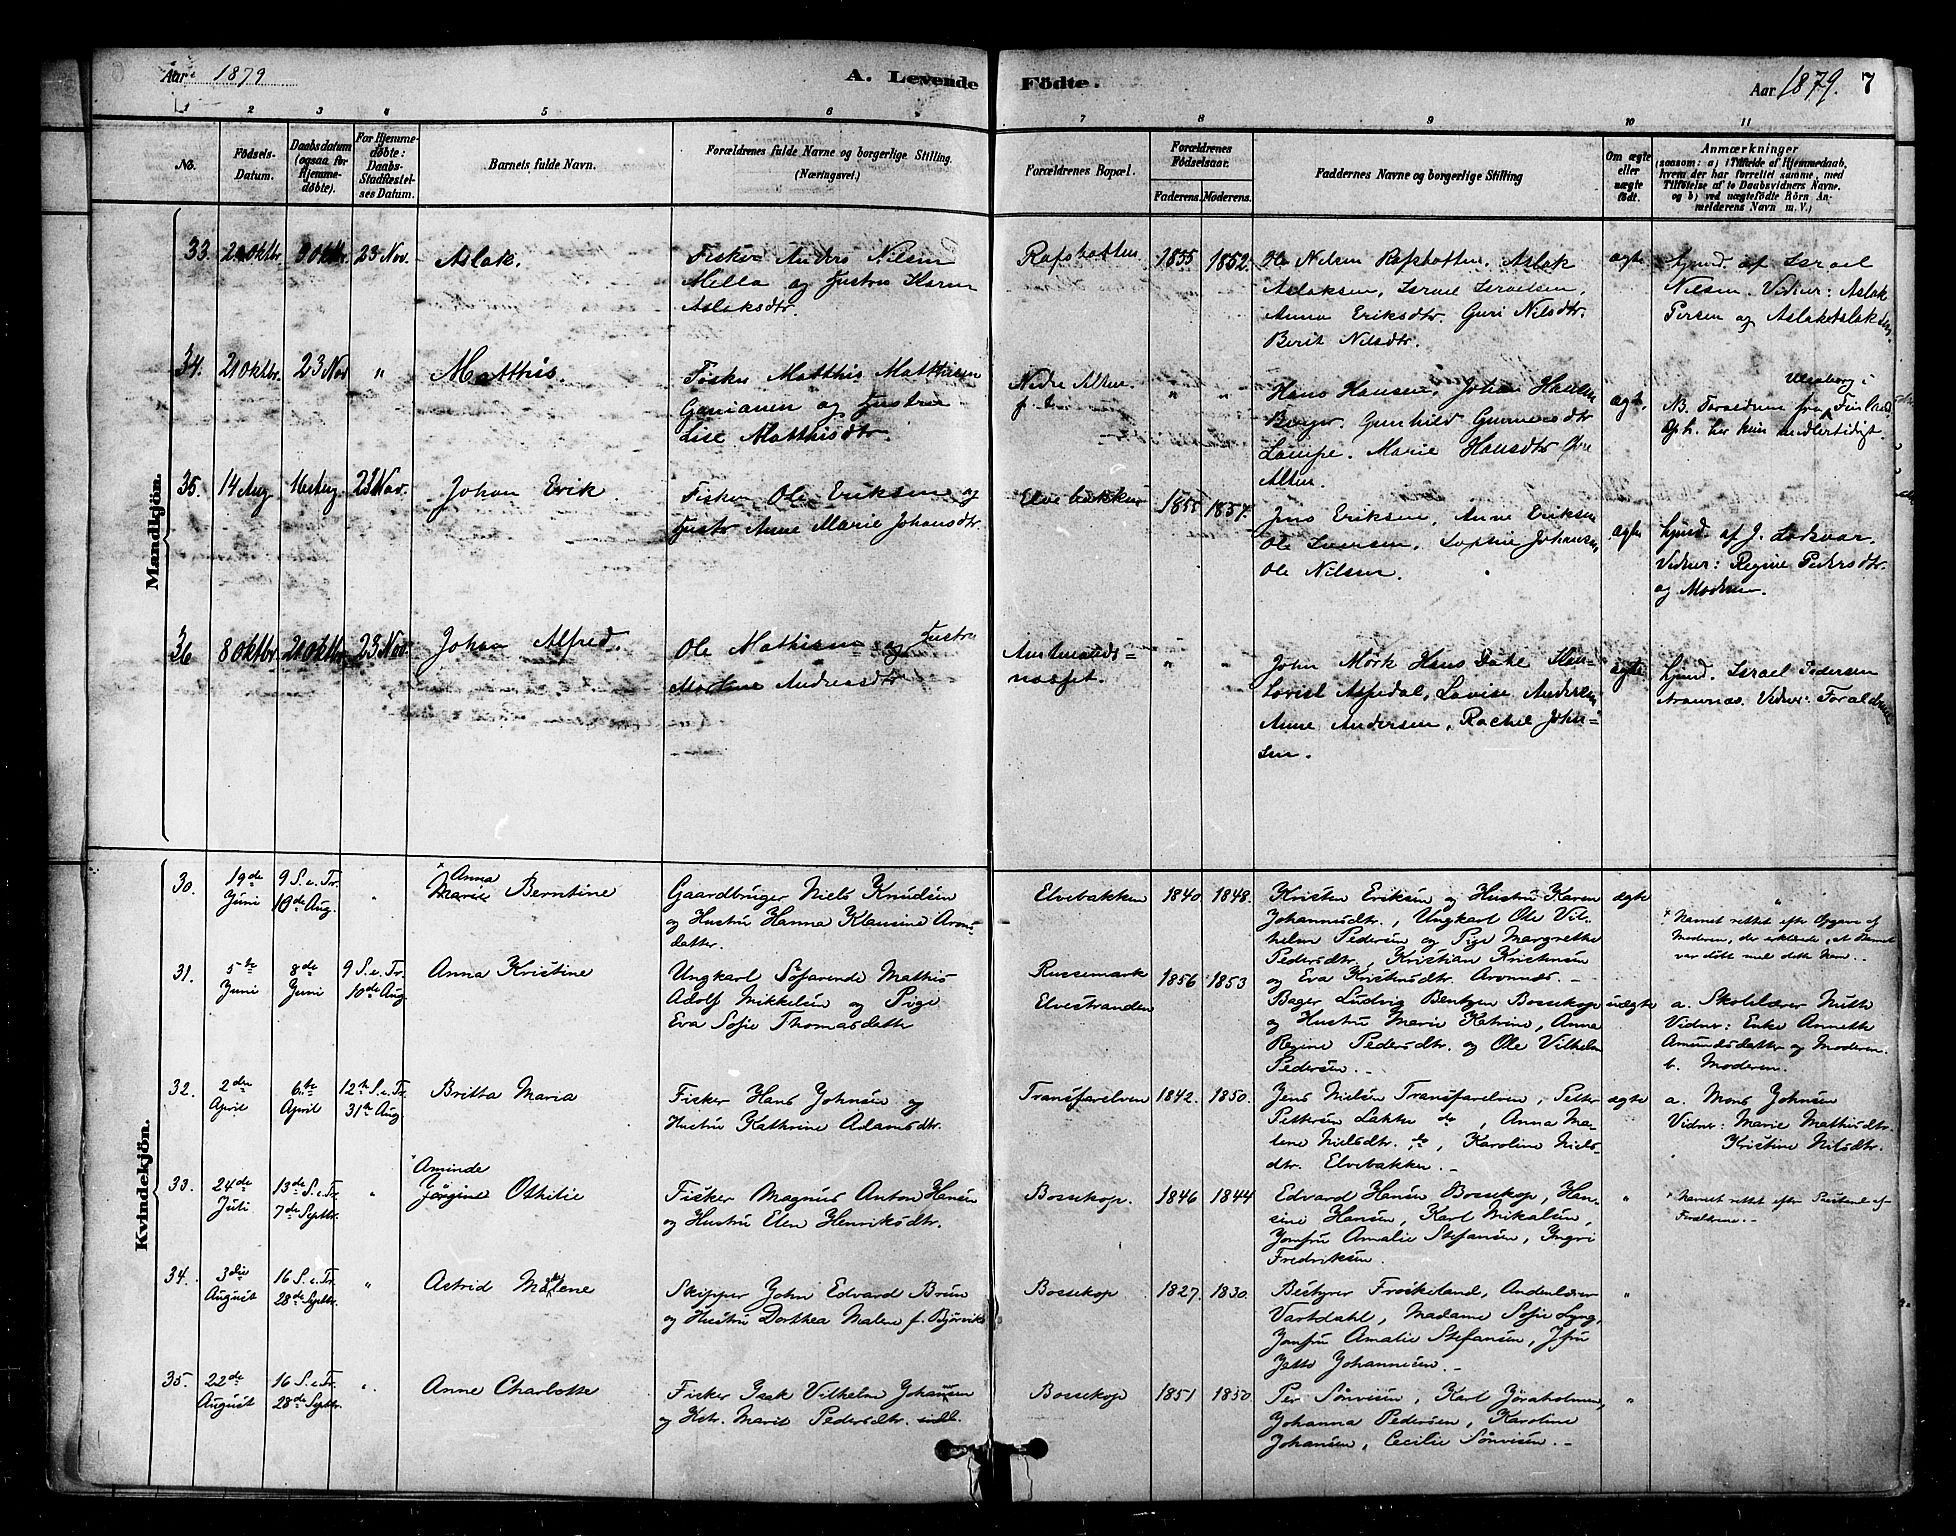 Aar 1879
A. Levende Födte.
Aar 1879. 7
1 2 3 4 5 6 7 8 9 10 11
No.
Födsels-Datum.
Daabsdatum (ogsaa for Hjemme-döbte).
For Hjemme-döbte: Daabs-Stadfæstel-ses Datum.
Barnets fulde Navn.
Forældrenes fulde Navne og borgerlige Stilling.
(Næringsvei.)
Forældrenes Bopæl.
Forældrenes Födselsaar.
Faderens. Moderens.
Faddernes Navne og borgerlige Stilling
Om ægte eller uægte födt.
Anmærkninger
(saasom: a) i Tilfælde af Hjemmedaab,
hvem der har forrettet samme, med
Tilföielse af to Daabsvidners Navne.
og b) ved uægtefödte Börn An-
melderens Navn m. V.)
Mandkjön.
33. 2 Oktbr. 9 Oktbr. 23 Nov. Aslak.
Fisker Anders Nilsen
Mella og Hustru Karen
Aslaksdtr.
Rafsbotten 1835 1852.
Ole Nilsen Rafsbotten, Aslak
Aslaksen, Israel Israelsen,
Anna Eriksdtr. Guri Nilsdtr.
Berit Nilsdtr.
ægte
hjmd. af Israel
Nilsen. Vidner: Aslak
Persen og Aslak Aslaksen
34. 21 Oktbr. 23 Nov " Matthis.
Fisker Matthis Matthisen
og Hustru
Lise Matthisdtr.
Nedre Alten
p. t. " "
Hans Hansen, Johan Hansen
Gunhild
Lampe. Marie Hansdtr Øvre
Alten.
ægte.
Uleaborg i
NB. Forældrene fra Finland.
Oph. her kun midlertidigt.
35. 14 Aug 16 Aug 23 Nov. Johan Erik.
Fisker Ole Eriksen og
Hustr Anne Marie Johansdtr.
Elvebakken 1855 1857.
Jens Eriksen, Anne Eriksen
Ole Iversen, Sophie Johansen,
Ole Nilsen.
ægte
hjmd. af J.
Vidner: Regine Pedersdtr.
og Moderen.
36 8 Oktbr. 21 Oktbr. 23 Nov. Johan Alfred.
Ole Mathisen og Hustru
Andreasdtr.
Amtmands=
næsset. " "
John Mörk Hans Dahl
Aspedal, Lovise Andersen
Anne Andersen, Rachel John=
sen.
ægte
hjmd. Israel Pedersen
Aronnæs. Vidner: Forældrene
Kvindekjön.
30. 19de Juni 9 S. e. Tr. 10de Aug. "
x Anna
Marie Berntine
Gaardbruger Niels Knudsen
og Hustru Hanna Klausine Arons-
datter.
Elvebakken 1840 1848.
Kristen Eriksen og Hustru Karen
Johannesdtr., Ungkarl Ole Vil-
helm Pedersen og Pige Margrethe
Pedersdtr., Kristian Kristensen
og Eva Kristensdtr. Aronnæs. –
ægte
"
x Navnet rettet efter Opgave af
Moderen, der erklærede, at Barnet
var döbt med dette Navn. –
31. 5te Juni 8de Juni 9 S. e. Tr. 10de Aug. Anna Kristine
Ungkarl Söfarende Mathis
Adolf Mikkelsen og Pige
Eva Sofie Thomasdatter
Russemark
Elvestranden 1856 1853
Bager Ludvig Bentzen Bossekop
og Hustru Marie Katrine, Anna
Regine Pedersdtr. og Ole Vilhelm
Pedersen. –
uægte
a. Skolelærer
Vidner: Enke Annette
Amundsdatter og Moderen.
b. Moderen.
32. 2den April 6te April 12te S. e. Tr. 31te Aug. Britta Maria
Fisker Hans Johnsen og
Hustru Kathrine Adamsdtr.
Transfarelven 1842. 1850.
Jens Nielsen Transfarelven, Petter
Pettersen Lakke do, Anna Ma-
lene Nielsdtr. do, Karoline Niels-
dtr. Elvebakken. –
ægte
a. Mons Johnsen
Vidner: Marie Mathisdtr.
Kristine Nilsdtr.
33. 24de Juli 13de S. e. Tr. 7de Septbr. "
x Aminde
Jörgine Othilie
Fisker Magnus Anton Hansen
og Hustru Elen Henriksdtr.
Bossekop. 1846 1844
Edvard Hansen Bossekop, Han-
sine Hansen, Karl Mikalsen,
Jomfru Amalie Stefansen, Ingri
Fredriksen
"
x Navnet rettet efter af
Forældrene. –
34. 3die August 16 S. e. Tr. 28de Septbr. " Astrid Malene
Skipper John Edvard Bruun
og Hustru Dorthea Malene f. Björvik
Bossekop 1827. 1830.
Bestyrer Froskeland, Andenlærer
Vartdahl, Madame Sofie Lyng,
Jomfru Amalie Stefansen, Jfru
Jette Johannesen. –
"
35. 22de August 16 S. e. Tr. 28de Septbr. " Anne Charlotte
Fisker Isak Vilhelm Johansen
og Hstr. Marit Pedersdtr.
Bossekop 1851 1850.
Per Sönvisen, Karl Jöraholmen,
Johanna Pedersen, Karoline
Johansen, Cecilie Sönvisen. –
"